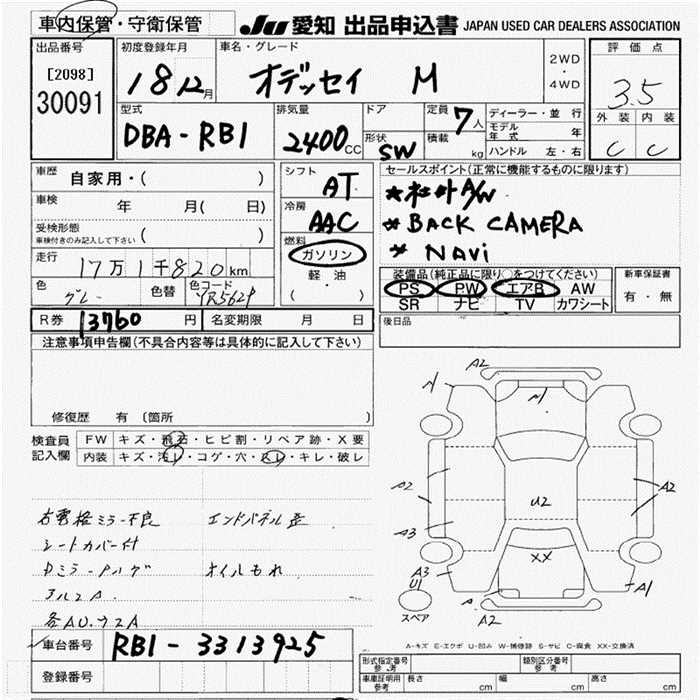 車内保管・守衛保管
JU 愛知 出品申込書 JAPAN USED CAR DEALERS ASSOCIATION
出品番号
[2098]
30091
初度登録年月
18 12月
車名・グレード
オデッセイ M
2WD
・
4WD
評価点
3.5
外装 内装
C C
型式
DBA-RB1
排気量
2400cc
ドア
形状
SW
定員
7人
積載
kg
ディーラー・並行
モデル年式 年
ハンドル 左・右
車歴
自家用・( )
車検
年 月( 日)
受検形態
車検付きのみ記入して下さい
( )
走行
17万1千820km
色
グレー
色替
色コード
YR562P
シフト
AT
冷房
AAC
燃料
ガソリン
軽油
( )
セールスポイント(正常に機能するものに限ります)
★社外A/W
* BACK CAMERA
* NAVi
装備品(純正品に限り○をつけてください)
PS PW エアB AW
SR ナビ TV カワシート
新車保証書
有・無
R券 13760円
名変期限 月 日
後日品
注意事項申告欄(不具合内容等は具体的に記入して下さい)
修復歴 有 〔箇所
検査員記入欄
FW キズ・飛石・ヒビ割・リペア跡・X要
内装 キズ・汚レ・コゲ・穴・スレ・キレ・破レ
右電格ミラー不良 エンドパネル歪
シートカバー付
Dミラー オイルもれ
アルミA
各AU、ウスA
A2
A2
A3
A3
U1
U2
XX
A2
A1
A
A2
スペア
A-キズ E-エクボ U-凹み W-補修跡 S-サビ C-腐食 XX-交換済
車台番号 RB1-3313925
登録番号
形式指定番号
参考
類別区分番号
参考
車庫証明用
参考
長さ cm 幅 cm 高さ cm